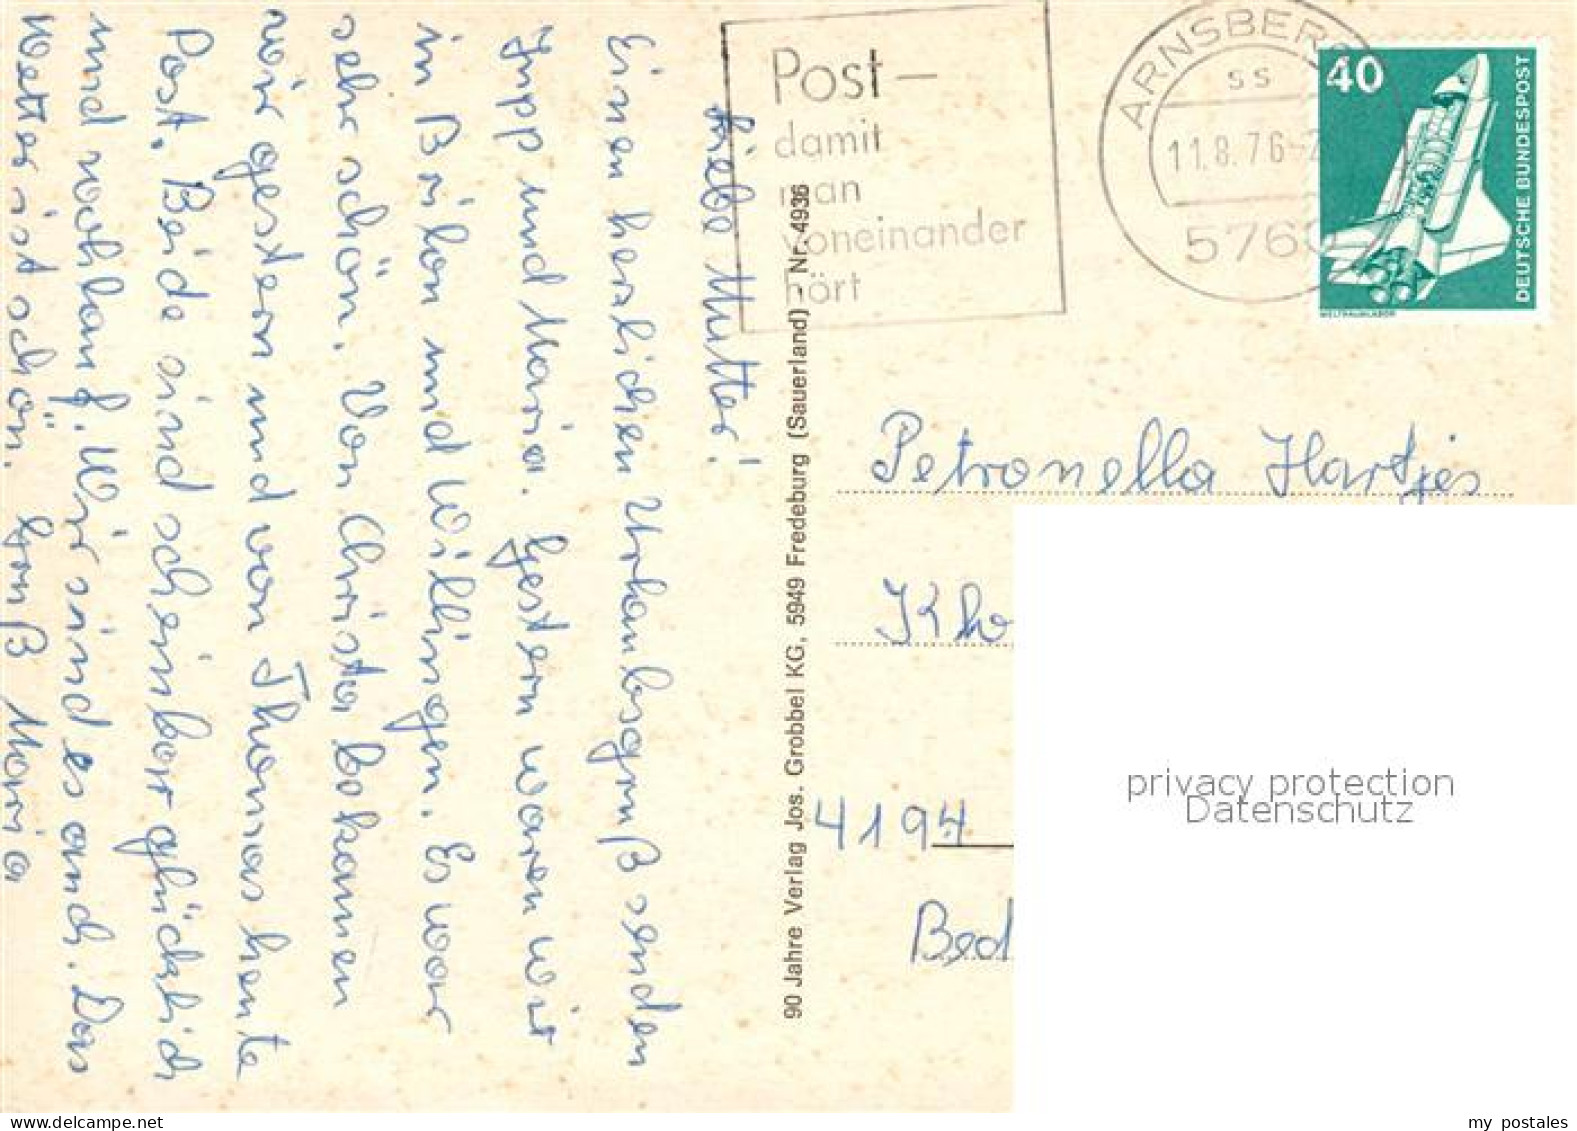 Liebe Mutter!
Einen herzlichen Urlaubsgruß senden
Jupp und Maria. Gestern waren wir
in Brilon und Willingen. Es war
sehr schön. Von Christa bekamen
wir gestern und von Thomas heute
Post. Beide sind scheinbar glücklich
und wohlauf. Wir sind es auch. Das
Wetter ist schön. Gruß Maria
90 Jahre Verlag Jos. Grobbel KG, 5949 Fredeburg (Sauerland) - Nr. 4936
Post –
damit
man
voneinander
hört
ARNSBER
ss
11.8.76-2
5760
40
DEUTSCHE BUNDESPOST
WELTRAUMLABOR
Petronella Hartjes
4194
Bed
privacy protection
Datenschutz
my postales